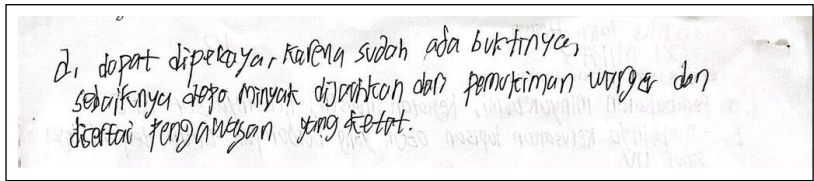 d, dapat dipercaya, karena sudah ada buktinya,
sebaiknya depo minyak dijauhkan dari pemukiman warga dan
disertai pengawasan yang ketat.